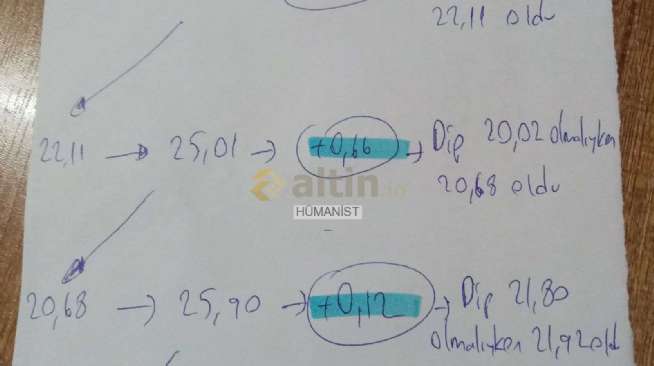 22,11 oldu
22,11 → 25,01 → +0,66 → Dip 20,02 olmalıyken
20,68 oldu
altin.in
HÜMANİST
20,68 → 25,90 → +0,12 → Dip 21,80
olmalıyken 21,92 old